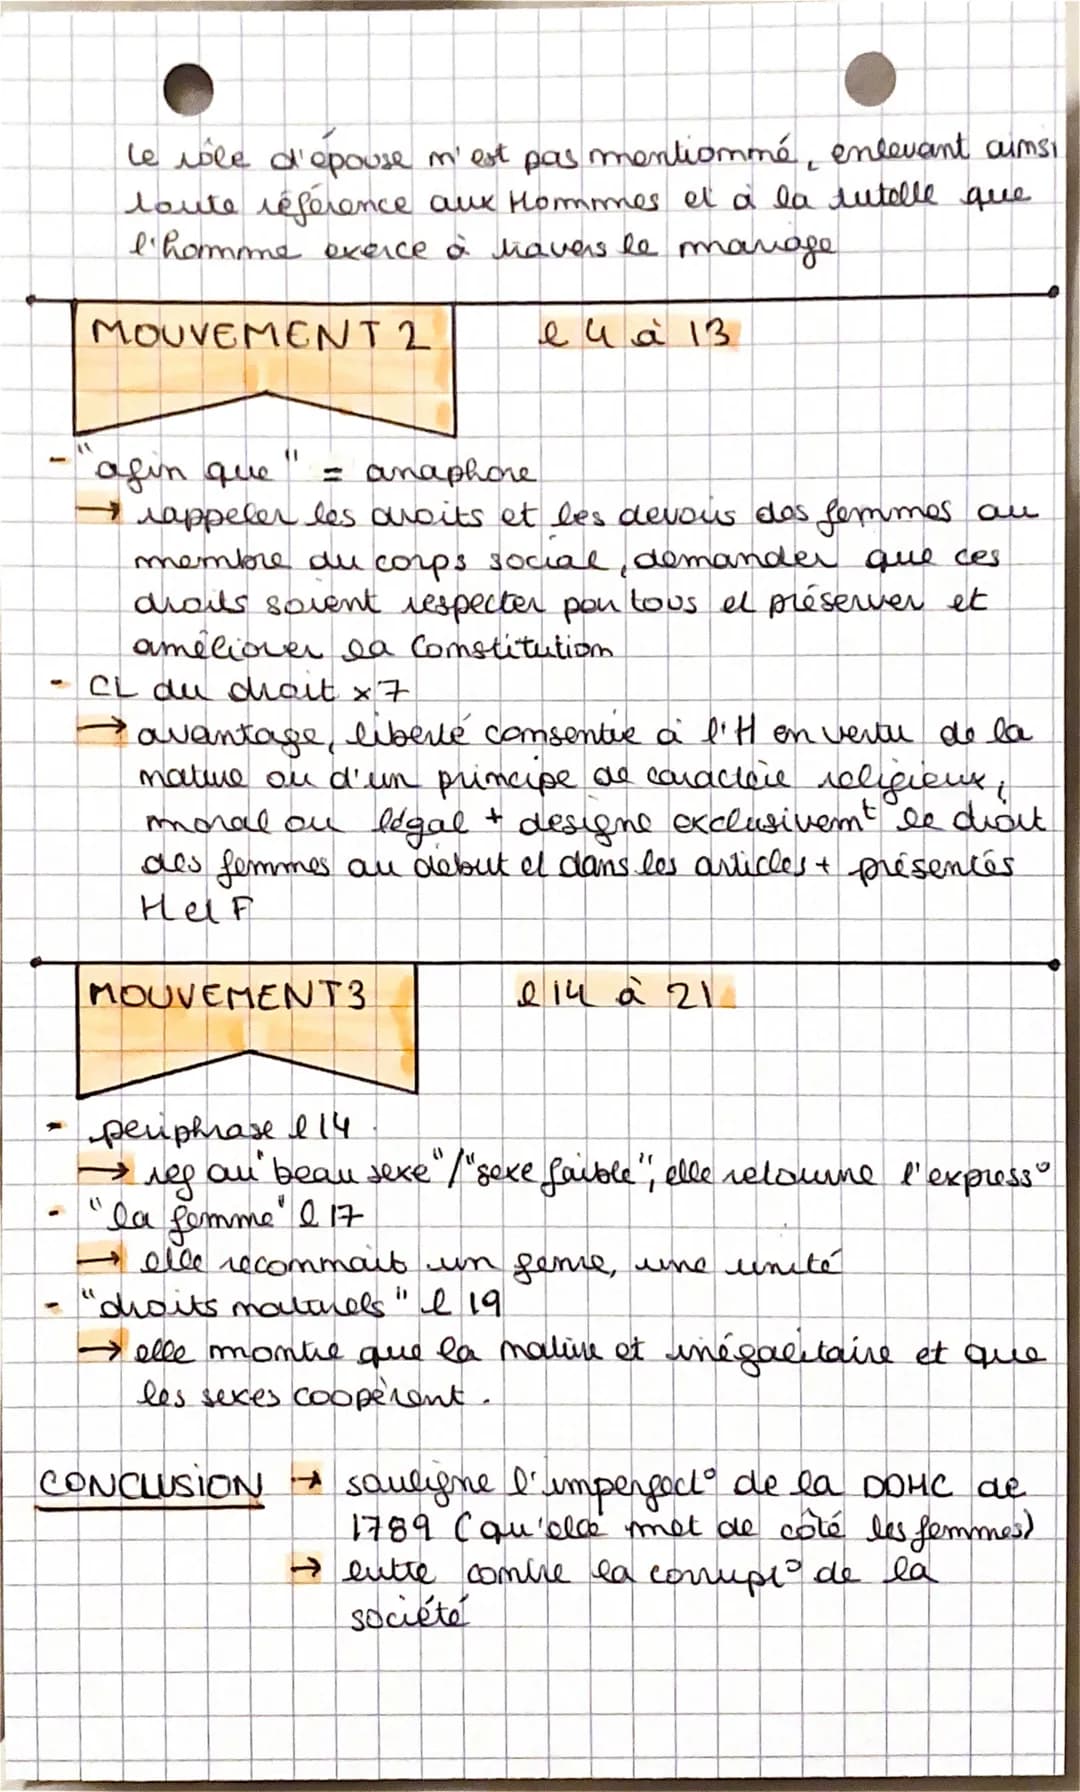 le rôle d'épouse n'est pas mentionné, enlevant ainsi
toute référence aux Hommes et à la tutelle que
l'homme exerce à travers le mariage
MOUVEMENT 2 l 4 à 13
- "afin que" = anaphore
→ rappeler les droits et les devoirs des femmes au
membre du corps social, demander que ces
droits soient respecter par tous et préserver et
améliorer la Constitution
- CL du droit x7
→ avantage, liberté consentie à l'H en vertu de la
nature ou d'un principe de caractère religieux,
moral ou légal + designe exclusivemt le droit
des femmes au début et dans les articles + présentés
H et F
MOUVEMENT 3 l 14 à 21
- periphrase l 14
→ reg au "beau sexe"/"sexe faible", elle retourne l'expressº
- "la femme" l 17
→ elle reconnait un genre, une unité
- "droits naturels" l 19
→ elle montre que la nature et inégalitaire et que
les sexes coopèrent.
CONCLUSION → souligne l'imperfectº de la DDHC de
1789 (qu'elle met de côté les femmes)
→ lutte contre la corruptº de la
société